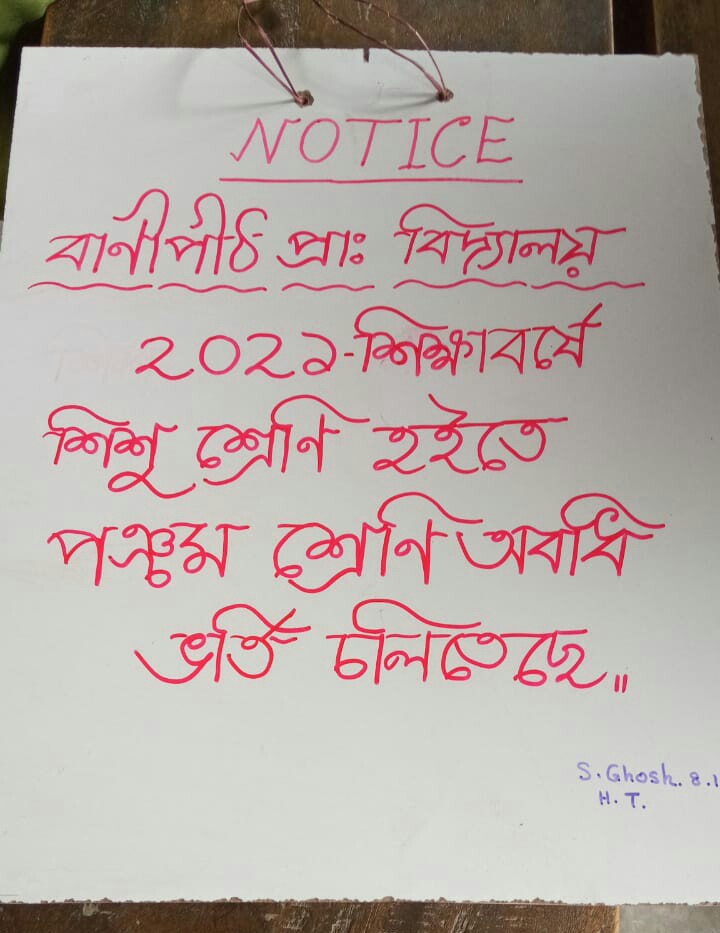 NOTICE
বাণীপীঠ প্রাঃ বিদ্যালয়
২০২১-শিক্ষাবর্ষে
শিশু শ্রেণি হইতে
পঞ্চম শ্রেণি অবধি
ভর্তি চলিতেছে॥
S. Ghosh. 8.1
H. T.